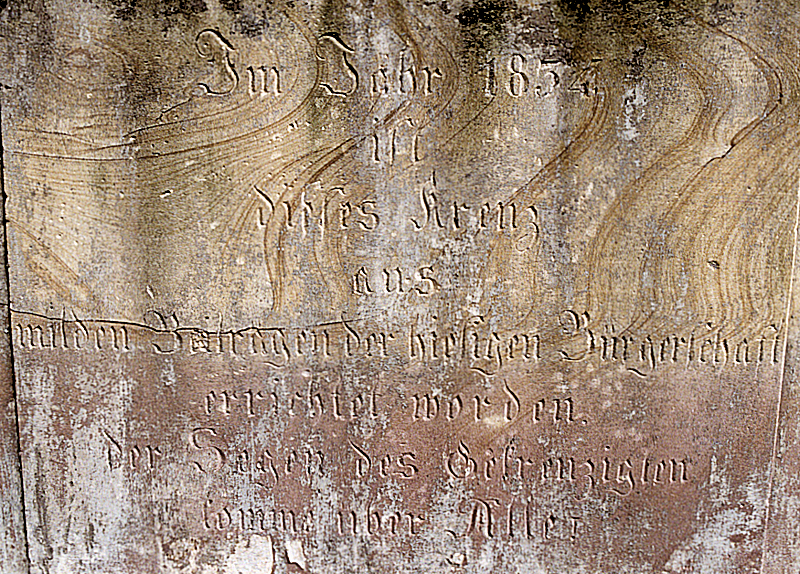 Im Jahr 1854
ist
disses Kreuz
aus
milden Beitragen der hiesigen Bürgerschaft
errichtet worden.
der Segen des Gekreuzigten
komme uber Alle